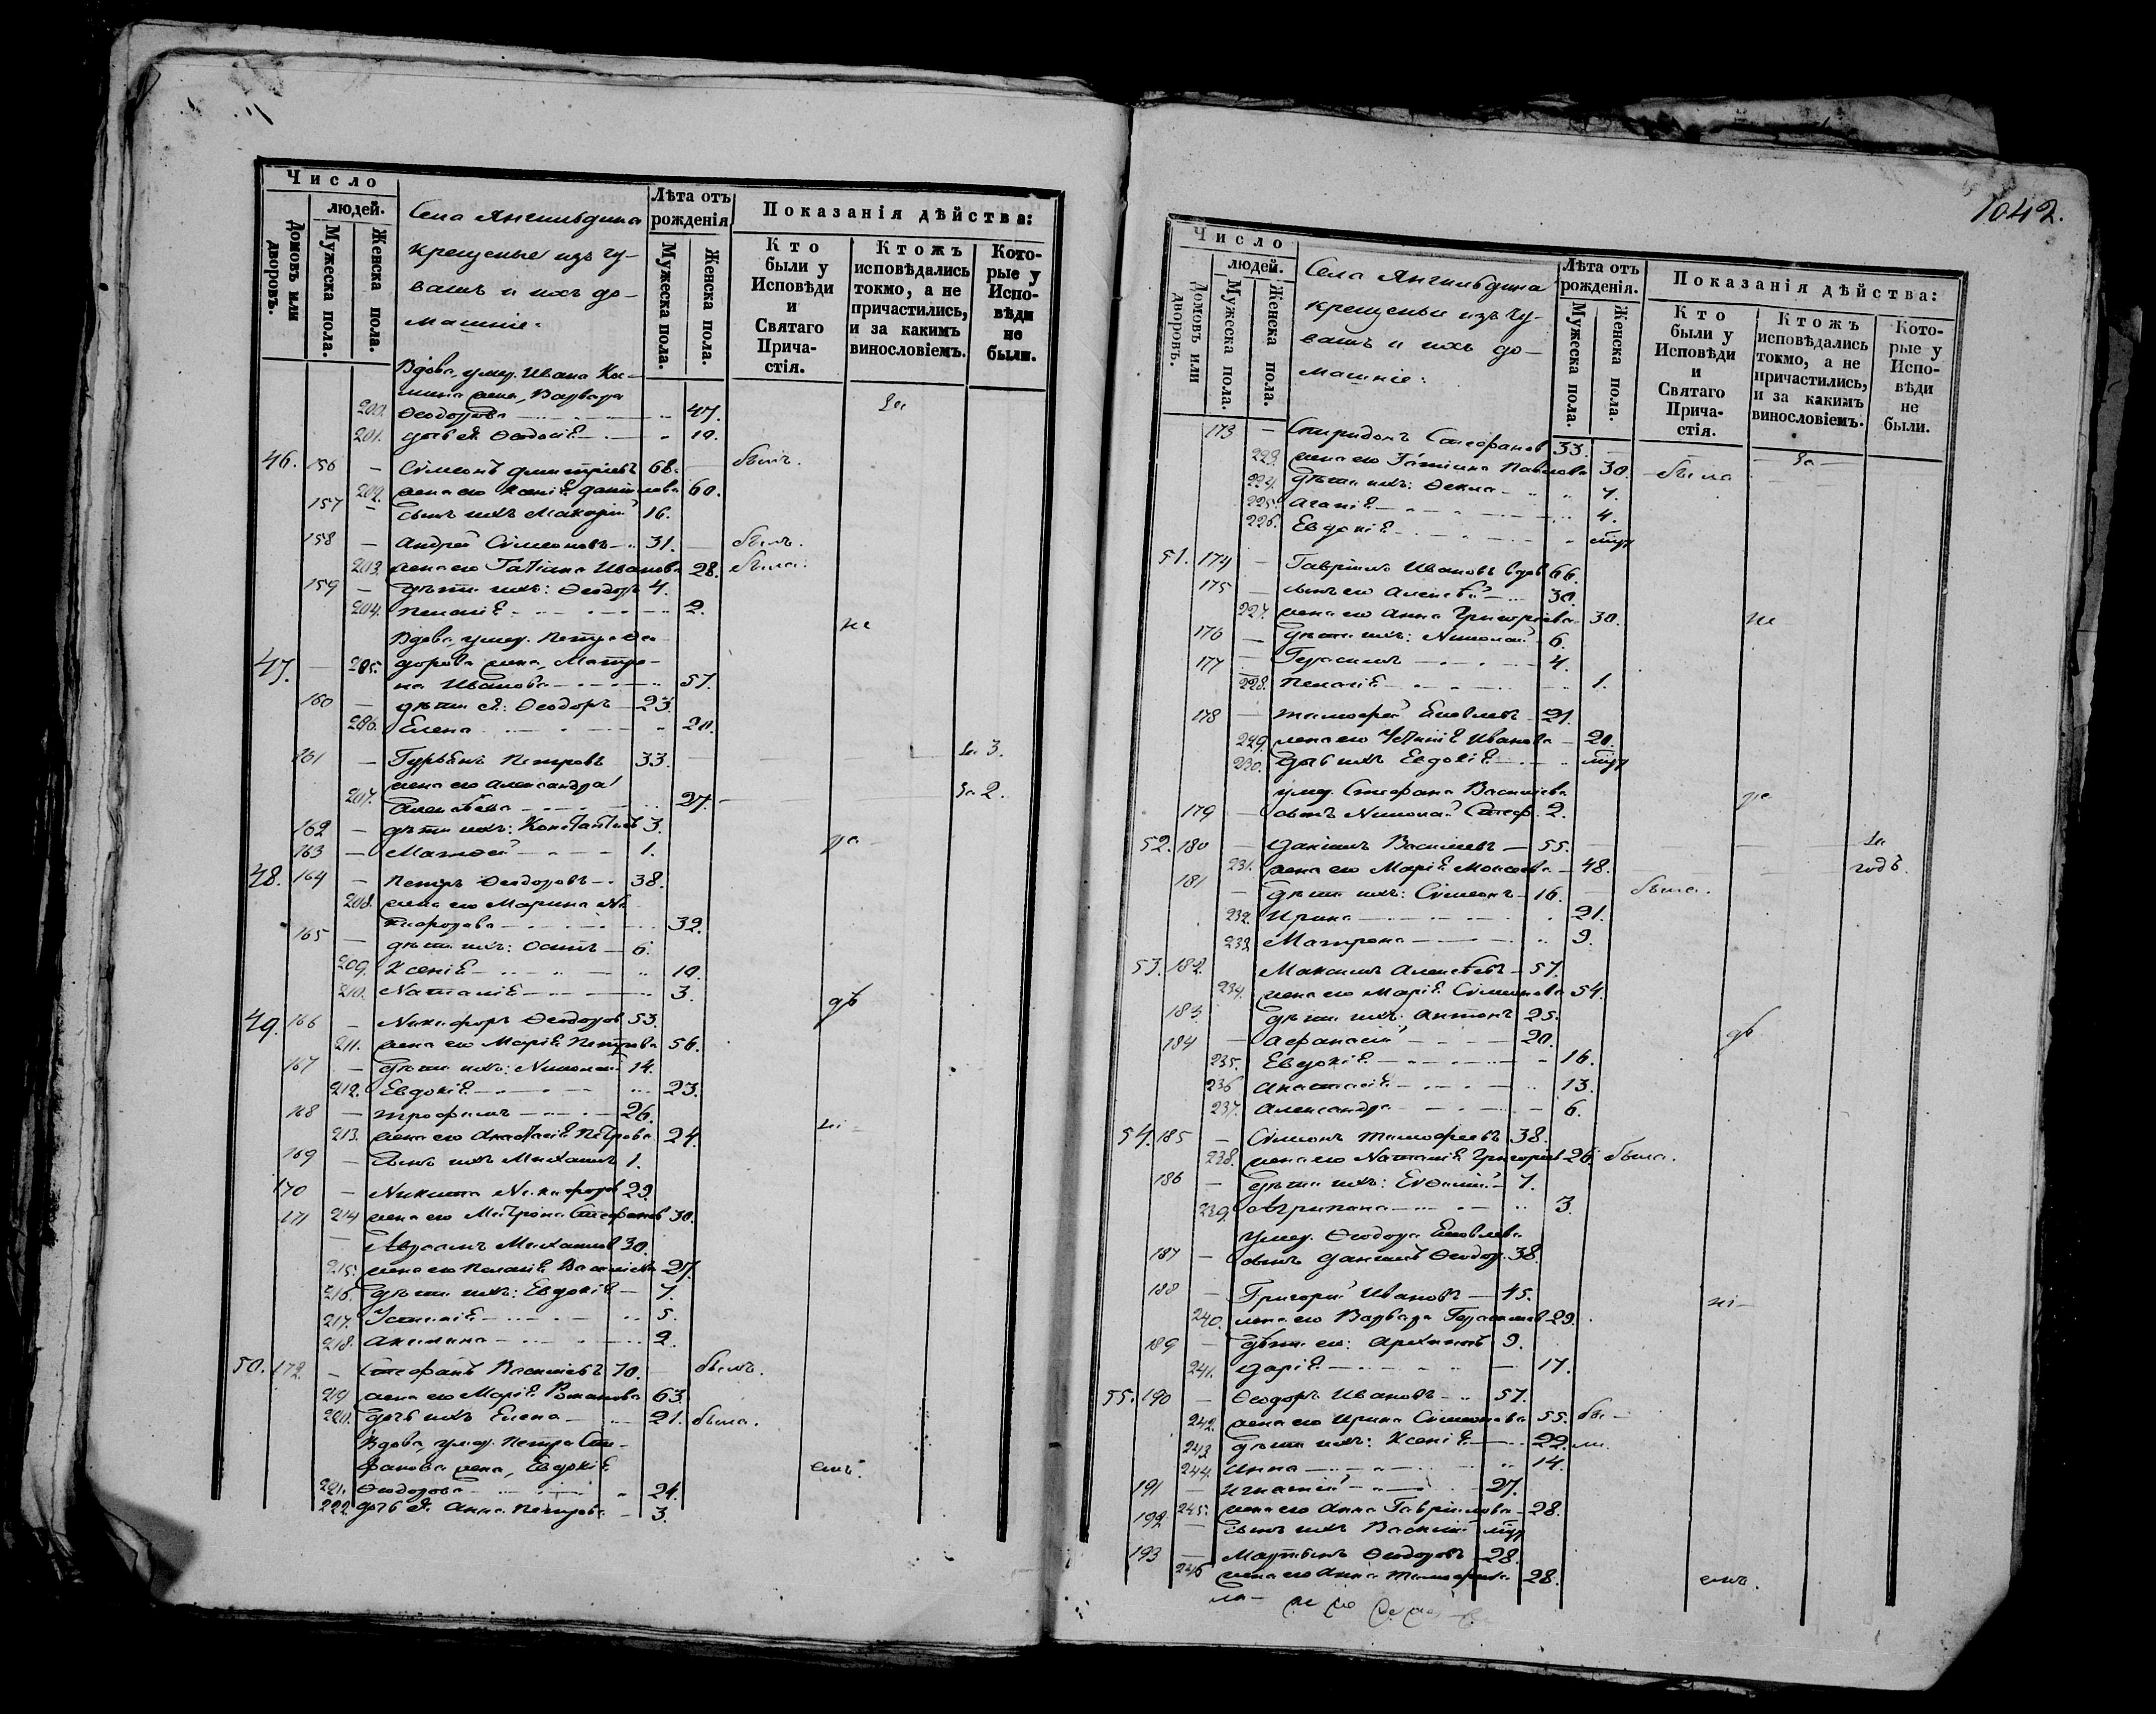 Число
людей.
Домовъ или дворовъ.
Мужеска пола.
Женска пола.
Села Янгильдина
крещеные изъ чу-
вашъ и ихъ до-
машніе.
Лѣта отъ рожденія
Мужеска пола.
Женска пола.
Показанія дѣйства:
Кто были у Исповѣди и Святаго Причастія.
Ктожъ исповѣдались токмо, а не причастились, и за какимъ винословіемъ.
Которые у Исповѣди не были.
Вдова, умер. Ивана
жена, Варвара
200. Ѳеодорова 47. За
201. дочь ея Ѳеодосія
46. 156 Сѵмеонъ Димитріевъ 68. былъ.
202. жена его Ксенія Данилова 60.
157 сынъ ихъ Макарій 16.
158 Андрей Сѵмеоновъ 31. былъ.
203. жена его Татіана Иванова 28. была.
159 дѣти ихъ: Ѳеодоръ 4.
204. Пелагія 2.
не
Вдова, умер. Петра Ѳео-
47. 205. дорова жена, Матро-
на Иванова 57.
160 дѣти ея: Ѳеодоръ 23.
206. Елена 20.
161 Гурьянъ Петровъ 33. 3.
жена его Александра
207. Алексѣева 27. За 2.
162 дѣти ихъ: Константинъ 3.
163 Матѳей 1.
48. 164 Петръ Ѳеодоровъ 38.
208. жена его Марина Ни-
кифорова 32.
165 дѣти ихъ: Осипъ 6.
209. Ксенія
210. Наталія 3.
49. 166 Никифоръ Ѳеодоров 53.
211. жена его Марія Петрова 56.
167 дѣти ихъ: Николай 14.
212. Евдокія 23.
168 Трофимъ 26.
213. жена его Анастасія Петрова 24.
169 сынъ ихъ Михаилъ 1.
170 Никита Никифоров 29.
171 214 жена его Матрона Стефанов 30.
Михаилов 30.
215. жена его Пелагія Васильева 27.
216. дѣти ихъ: Евдокія 7.
217. Устинія 5.
218. Акилина 2.
50. 172. Стефанъ Васильевъ 70. былъ.
219 жена его Марія Романова 63.
220. дочь ихъ Елена 21. была.
Вдова, умер. Петра Сте-
фанова жена, Евдокія
221. Ѳеодорова 24.
222. дочь ея Анна Петрова 3.
1042.
Число
людей.
Домовъ или дворовъ.
Мужеска пола.
Женска пола.
Села Янгильдина
крещеные изъ чу-
вашъ и ихъ до-
машніе:
Лѣта отъ рожденія.
Мужеска пола.
Женска пола.
Показанія дѣйства:
Кто были у Исповѣди и Святаго Причастія.
Ктожъ исповѣдались токмо, а не причастились, и за какимъ винословіемъ.
Которые у Исповѣди не были.
173 Спиридонъ Стефанов 33. За
223. жена его Татіана Павлова 30. была
224. дѣти ихъ: Ѳекла 7.
225. Агаѳія 4.
226. Евдокія
51. 174 Гавріилъ Ивановъ вдов 66.
175 сынъ его Алексѣй 30.
227. жена его Анна Григоріева 30.
176 дѣти ихъ: Николай 6.
177 Герасимъ 4.
228. Пелагія 1.
178 Тимофей Яковлевъ 21.
229. жена его Устинія Иванова 20.
230. дочь ихъ Евдокія
умер. Стефана Васильева
179 сынъ Николай Стеф. 2.
52. 180 Даніилъ Васильевъ 55.
231. жена его Марія Моисеева 48. годъ.
181 дѣти ихъ: Сѵмеонъ 16. была.
232. Ирина 21.
233 Матрона 9.
53. 182. Максимъ Алексѣевъ 57.
234. жена его Марія Сѵмеонова 54.
183. дѣти ихъ: Антонъ 25.
184 Афанасій 20.
235. Евдокія 16.
236 Анастасія 13.
237. Александра 6.
54. 185 Сѵмеонъ Тимофеевъ 38.
238. жена его Наталія Григоріев 26. была.
186 дѣти ихъ: 7.
239. Агрипина 3.
умер. Ѳеодора Яковлева
187 сынъ Даніилъ Ѳеодор. 38.
188 Григорій Ивановъ 45.
240. жена его Варвара Герасимов 29.
189 дѣти его: Архипъ 9.
241. Дарія 17.
55. 190 Ѳеодоръ Ивановъ 57.
242. жена его Ирина Сѵмеонова 55. бы-
243 дѣти ихъ: Ксенія 22. ли.
244. Анна 14.
191 Игнатій 27.
245. жена его Анна Гавріилова 28.
192 сынъ ихъ Василій
193 Мартынъ Ѳеодоровъ 28.
246 жена его Анна Тимофеева 28.